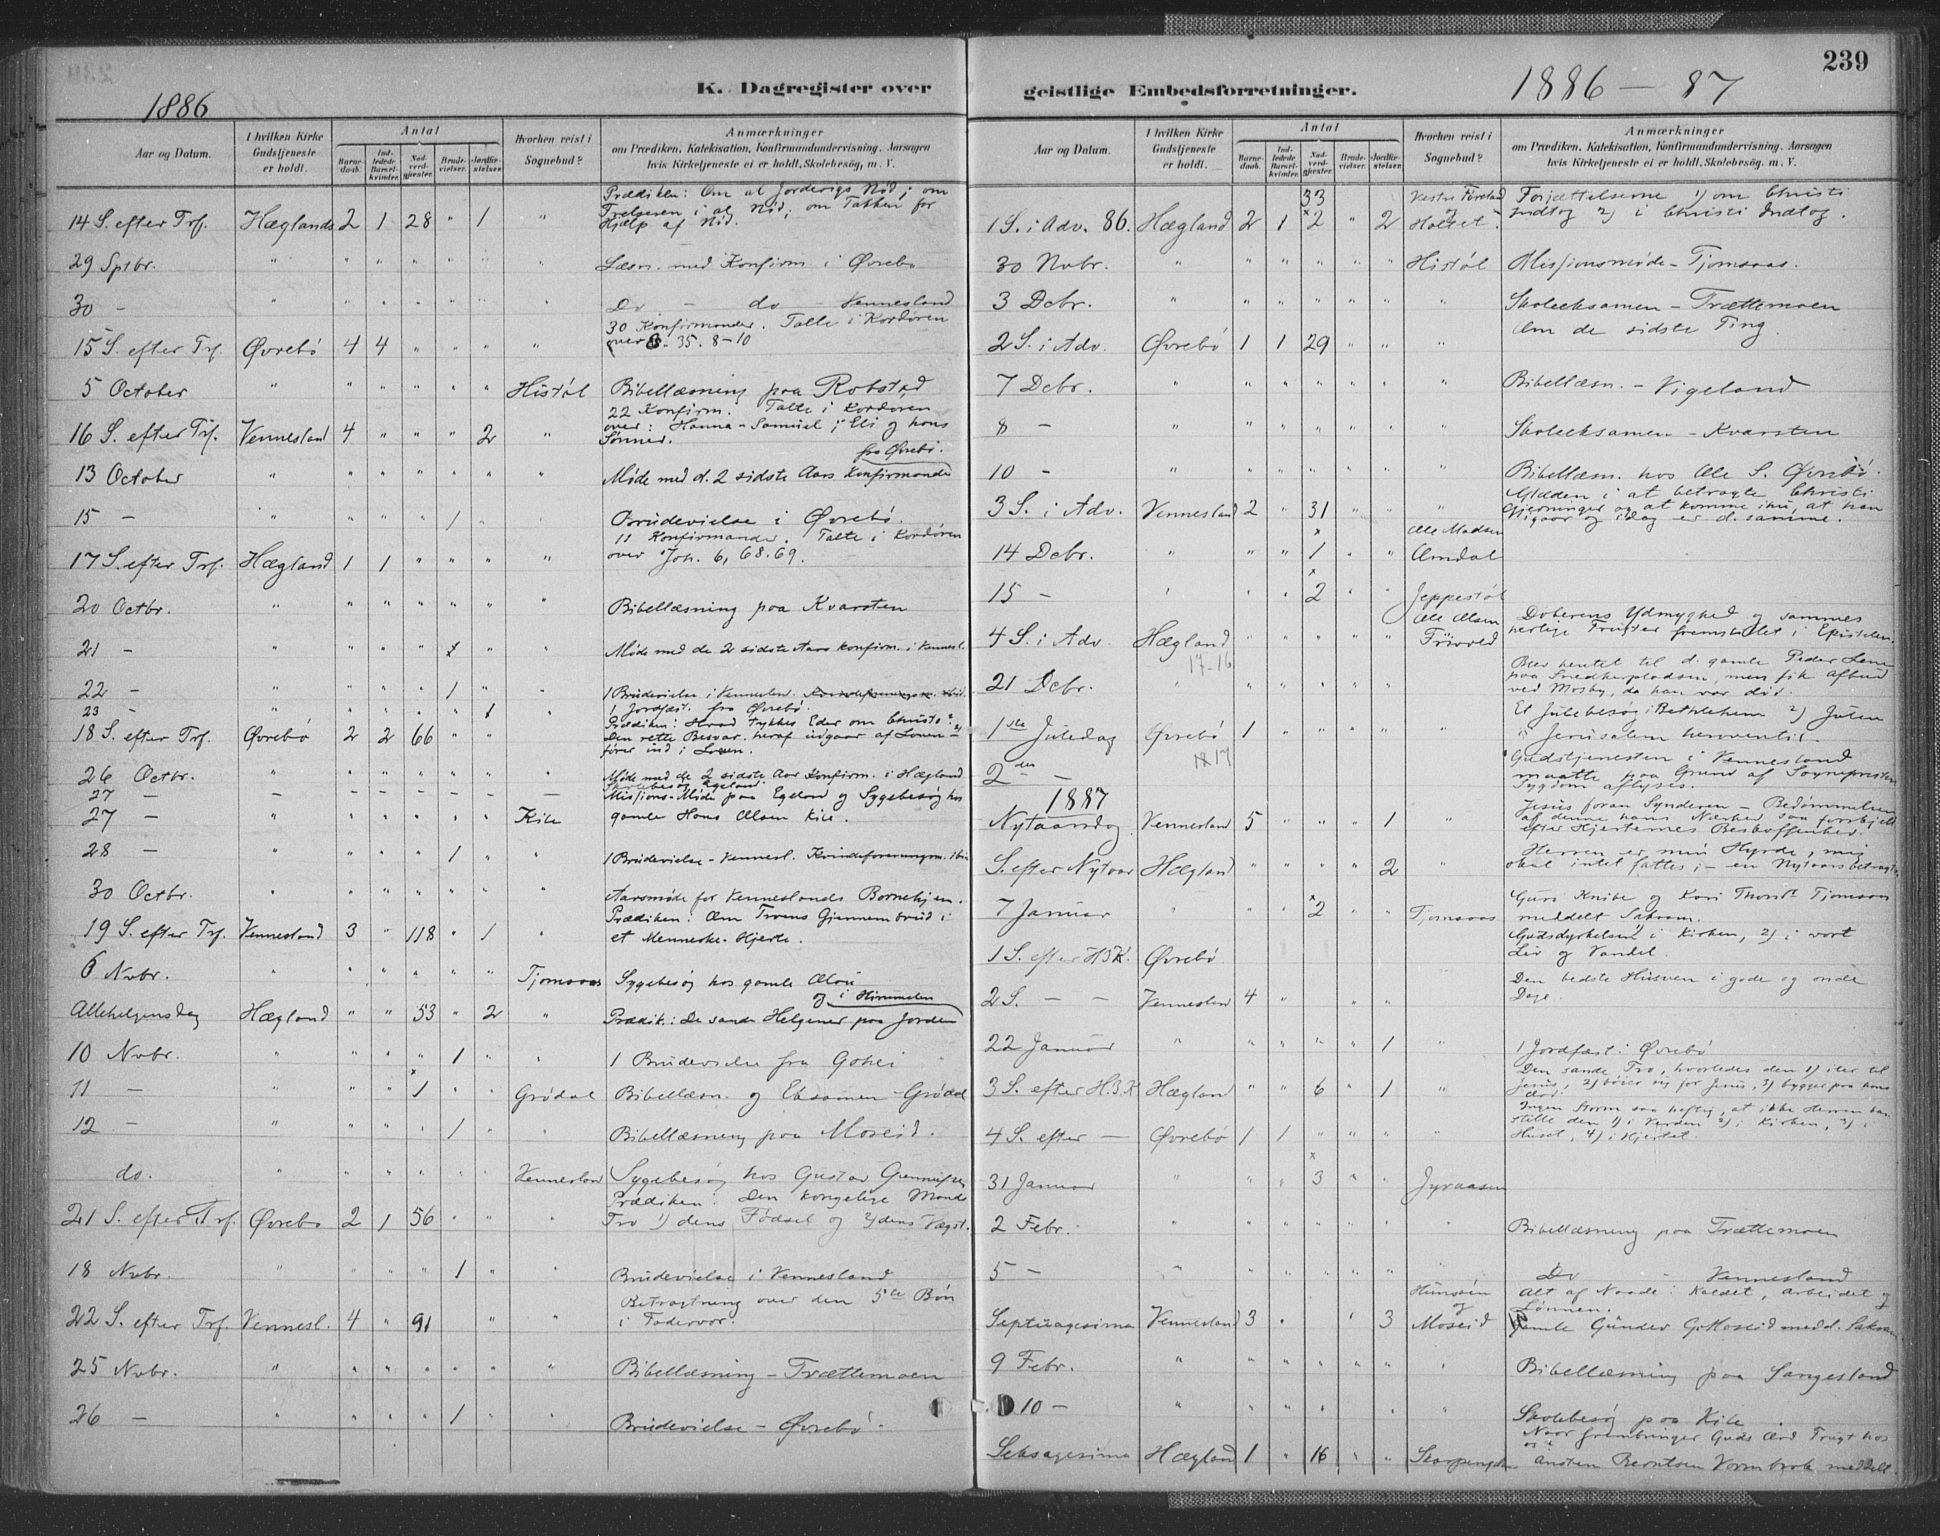 239
K. Dagregister over geistlige Embedsforretninger.
1886
1886 – 87
Aar og Datum.
I hvilken Kirke Gudstjeneste er holdt.
Antal
Barnedaab.
Indledede Barselkvinder.
Nadverdgjester.
Brudevielser.
Jordfæstelser.
Hvorhen reist i Sognebud?
Anmærkninger
om Prædiken, Katekisation, Konfirmandundervisning. Aarsagen hvis Kirketjeneste ei er holdt, Skolebesøg, m. V.
Prædiken: Om al Jorderigs Nød; om
Frelseren i al Nød; om Takken for
14 S. efter Trf. Hæglands 2 1 28 " 1 " Hjælp af Nød.
29 Sptbr. " " " " " " " Læsn. med Konfirm i Øvrebø
30 - " " " " " " " Do - do - Vennesland
30 Konfirmander. Talte i Kordøren
15 S. efter Trf. Øvrebø 4 4 " " " " over S. 35. 8-10
5 October " " " " " " Histøl Bibellæsning paa Robstad
22 Konfirm. Talte i Kordøren
over: Hanna - Samuel; Eli og hans
16 S. efter Trf. Vennesland 4 " " " 2 " Sønner.
fra Øvrebø.
13 October " " " " " " " Møde med d. 2 sidste Aars Konfirmander
15 - " " " " 1 " " Brudevielse i Øvrebø.
11 Konfirmander. Talte i Kordøren
17 S. efter Trf. Hægland 1 1 " " " " over Joh. 6, 68.69.
20 Octbr. " " " " " " " Bibellæsning paa Kvarsten
21 - " " " " " " Møde med de 2 sidste Aars konfirm. i Vennesl.
22 - " " " " 1 " " 1 Brudevielse i Vennesland.
23 - " " " " " 1 1 Jordfæst. fra Øvrebø.
Prædiken: Hvad tykkes Eder om Christo?
18 S. efter Trf. Øvrebø 2 2 66 " " Den rette Besvar. heraf udgaar af Loven
fører ind i Loven.
26 Octbr. " " " " " " " Møde med de 2 sidste Aar Konfirm. i Hægland
Skolebesøg Egeland
27 - - - - - - - - Missions-Møde paa Egeland og Sygebesøg hos
27 - " " " " " " Kile gamle Hans Olsen Kile.
28 - " " " " 1 " " 1 Brudevielse - Vennesl.
30 Octbr. " " " " " " " Aarsmøde for Venneslands Børnehjem.
Prædiken: Om Troens Gjennembrud i
19 S. efter Trf. Vennesland 3 " 118 " 1 " et Menneske-Hjerte.
6 Nvbr. " " " " " " Tjomsaas Sygebesøg hos gamle
og i Himmelen
Allehelgensdag Hægland " " 53 " 2 " Prædik.: De sande Helgener paa Jorden
10 Nvbr. " " " " 1 " " 1 Brudevielse fra
11 - " " " × 1 " " Grødal Bibellæsn. og Eksamen - Grødal
12 - " " " " 1 " " Bibellæsning paa Moseid.
do. " " " " " " Vennesland Sygebesøg hos Gustav
Prædiken: Den kongelige Mands
21 S. efter Trf. Øvrebø 2 1 56 " " " Tro 1) dens Fødsel og 2) dens Vægst.
18 Nvbr. " " " " 1 " " Brudevielse i Vennesland
Betragtning over den 5te Bøn
22 S. efter Trf. Vennesl. 4 " 91 " " " i Fadervor.
25 Nvbr. " " " " " " " Bibellæsning - Trættemoen
26 - " " " " 1 " " Brudevielse - Øvrebø.
Aar og Datum.
I hvilken Kirke Gudstjeneste er holdt.
Antal
Barnedaab.
Indledede Barselkvinder.
Nadverdgjester.
Brudevielser.
Jordfæstelser.
Hvorhen reist i Sognebud?
Anmærkninger
om Prædiken, Katekisation, Konfirmandundervisning. Aarsagen hvis Kirketjeneste ei er holdt, Skolebesøg. m. V.
33 Forjættelserne 1) om Christi
1 S. i Adv. 86. Hægland 2 1 × 2 " 2 og Holtet. Indtog 2) i Christi Indtog.
30 Nvbr. " " " " " " Histøl Missionsmøde - Tjomsaas.
3 Dcbr. " " " " " " " Skoleeksamen - Trættemoen
Om de sidste Ting
2 S. i Adv. Øvrebø 1 1 29 " " "
7 Dcbr. " " " " " " " Bibellæsn. - Vigeland
8 - " " " " " " " Skoleeksamen - Kvarsten
10 - " " " " " " " Bibellæsn. hos Ole S. Øvrebø.
Glæden i at betragte Christi
3 S. i Adv. Vennesland 2 " 31 " " " Gjerninger og at komme ihu, at han
igaar og idag er d. samme.
Ole Madsen
14 Dcbr. " " " × 1 " " Omdal
15 - " " " × 2 " " Jeppestøl
Ole Olsen Døberens Ydmyghed og sammes
4 S. i Adv. Hægland " " " " " herlige Frugter fremstillet i Epistelen.
17-16
Blev hentet til d. gamle Peder
21 Dcbr. " " " " " " paa Snedkerpladsen, men fik Afbud
ved Mosby, da han var død.
Et Julebesøg i Bethlehem 2) Julen
1ste Juledag Øvrebø 1 " " " " " i Jerusalem
17
Gudstjenesten i Vennesland
2den - maatte paa Grund af Sognepresten
Sygdom aflyses.
1887
Jesus foran Synderen - Bedømmelsen
Nytaarsdag Vennesland 5 " " " 1 " af denne hans Nærhed saa forskjell.
efter Hjerternes Beskaffenhed.
Herren er min Hyrde, mig
S. efter Nytaar Hægland " " " " 2 " skal intet fattes; - en Nytaars
Guri Knibe og Kari Tjomsaas
7 Januar " " " × 2 " " Tjomsaas meddelt Sakram.
Gudsdyrkelsen 1) i Kirken, 2) i vort
1 S. efter H3K. Øvrebø Liv og Vandel.
Den bedste Husven i gode og onde
2 S. - - Vennesland 4 " " Dage.
22 Januar " " " " " 1 " 1 Jordfæst. i Øvrebø
Den sande Tro, hvorledes den 1) iler til
3 S. efter H.3.K Hægland " " 6 " 1 " Jesus, 2) bøier sig for Jesus, 3) bygger paa hans
Ord.
Ingen Storm saa heftig, at ikke Herren kan
4 S. efter - Øvrebø 1 1 " " " " stille den 1) i Verden 2) i Kirken, 3) i
Huset, 4) i Hjertet.
31 Januar " " " × 3 " " Jyraasen
2 Febr. " " " " " " " Bibellæsning paa Trættemoen
5 - " " " " " " " Do - Vennesland
Hunsøen Alt af Naade: Kaldet, Arbeidet og
og Lønnen.
Septuagesima Vennesland 3 " " 3 Moseid gamle Gunder G. Moseid medd. Sakram
9 Febr. " " " " " " " Bibellæsning paa Sangesland
10 - " " " " " " " Skolebesøg paa Kile.
Naar frembringer Guds Ord Frugt hos
os?
Seksagesima Hægland 1 " 16 " " Ansten Berntsen Vormbrok meddelt.